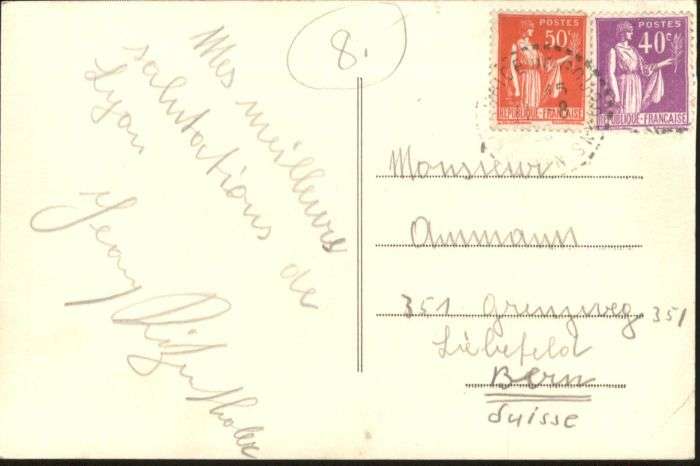 8.
Mes meilleures
salutations de
Lyon
Jean
POSTES
50c
RÉPUBLIQUE FRANÇAISE
POSTES
40c
RÉPUBLIQUE FRANÇAISE
Monsieur
Ammann
351 Grenzweg 351
Liebefeld
Bern
Suisse